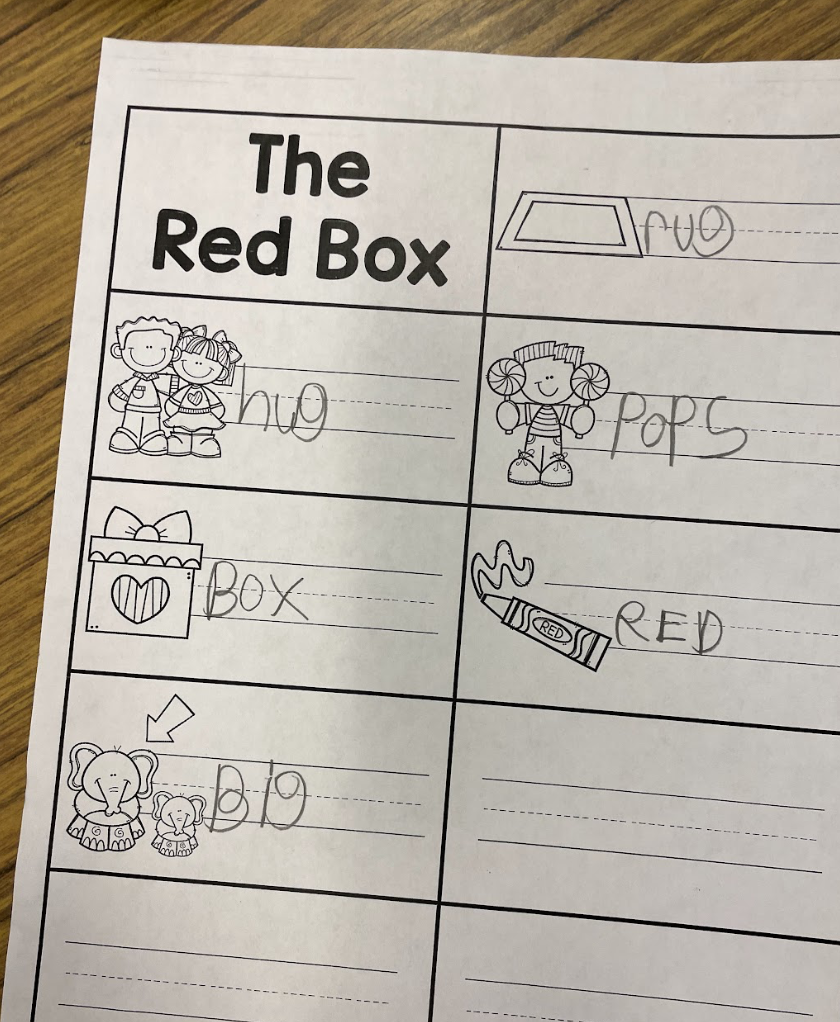 The
Red Box
rug
hug
POPS
BOX
RED
RED
BIg